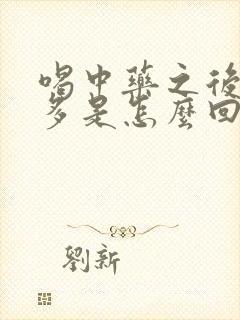 喝中藥之後
多是怎麼回
劉新